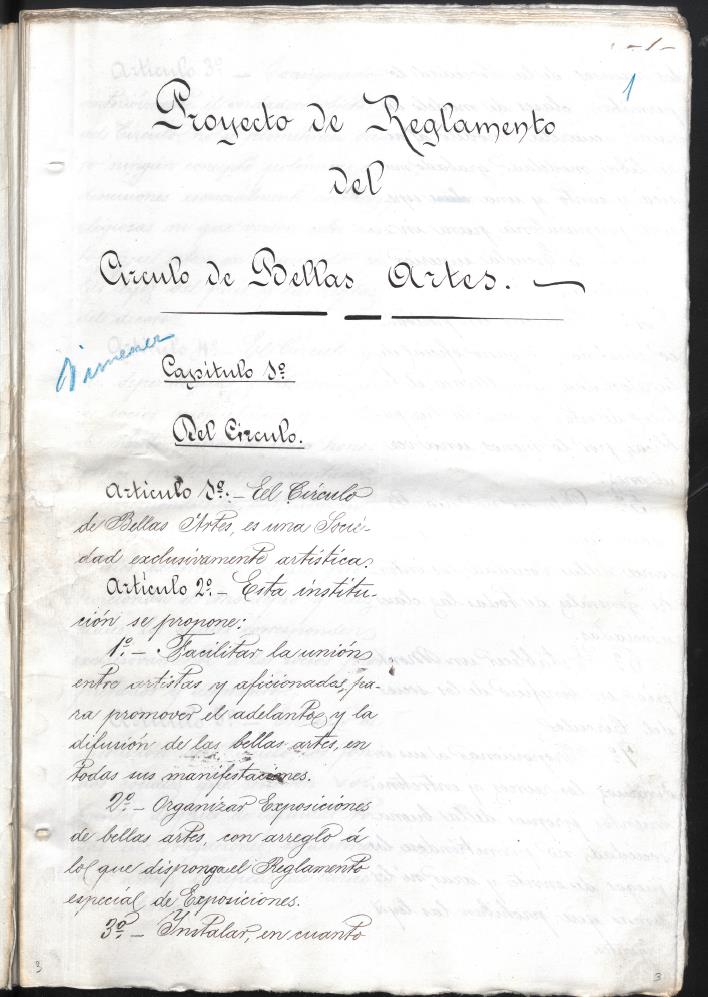 -1-
1
Proyecto de Reglamento
del
Círculo de Bellas Artes.
Capítulo 1º
Del Círculo.
Artículo 1º.- Eel Círculo
de Bellas Artes, es una Socie-
dad exclusivamente artística.
Artículo 2º.- Esta institu-
ción se propone:
1º.- Facilitar la unión
entre artistas y aficionados, pa-
ra promover el adelanto, y la
difusión de las bellas artes, en
todas sus manifestaciones.
2º.- Organizar Exposiciones
de bellas artes, con arreglo á
lo que disponga el Reglamento
especial de Exposiciones.
3º.- Instalar, en cuanto
3
3